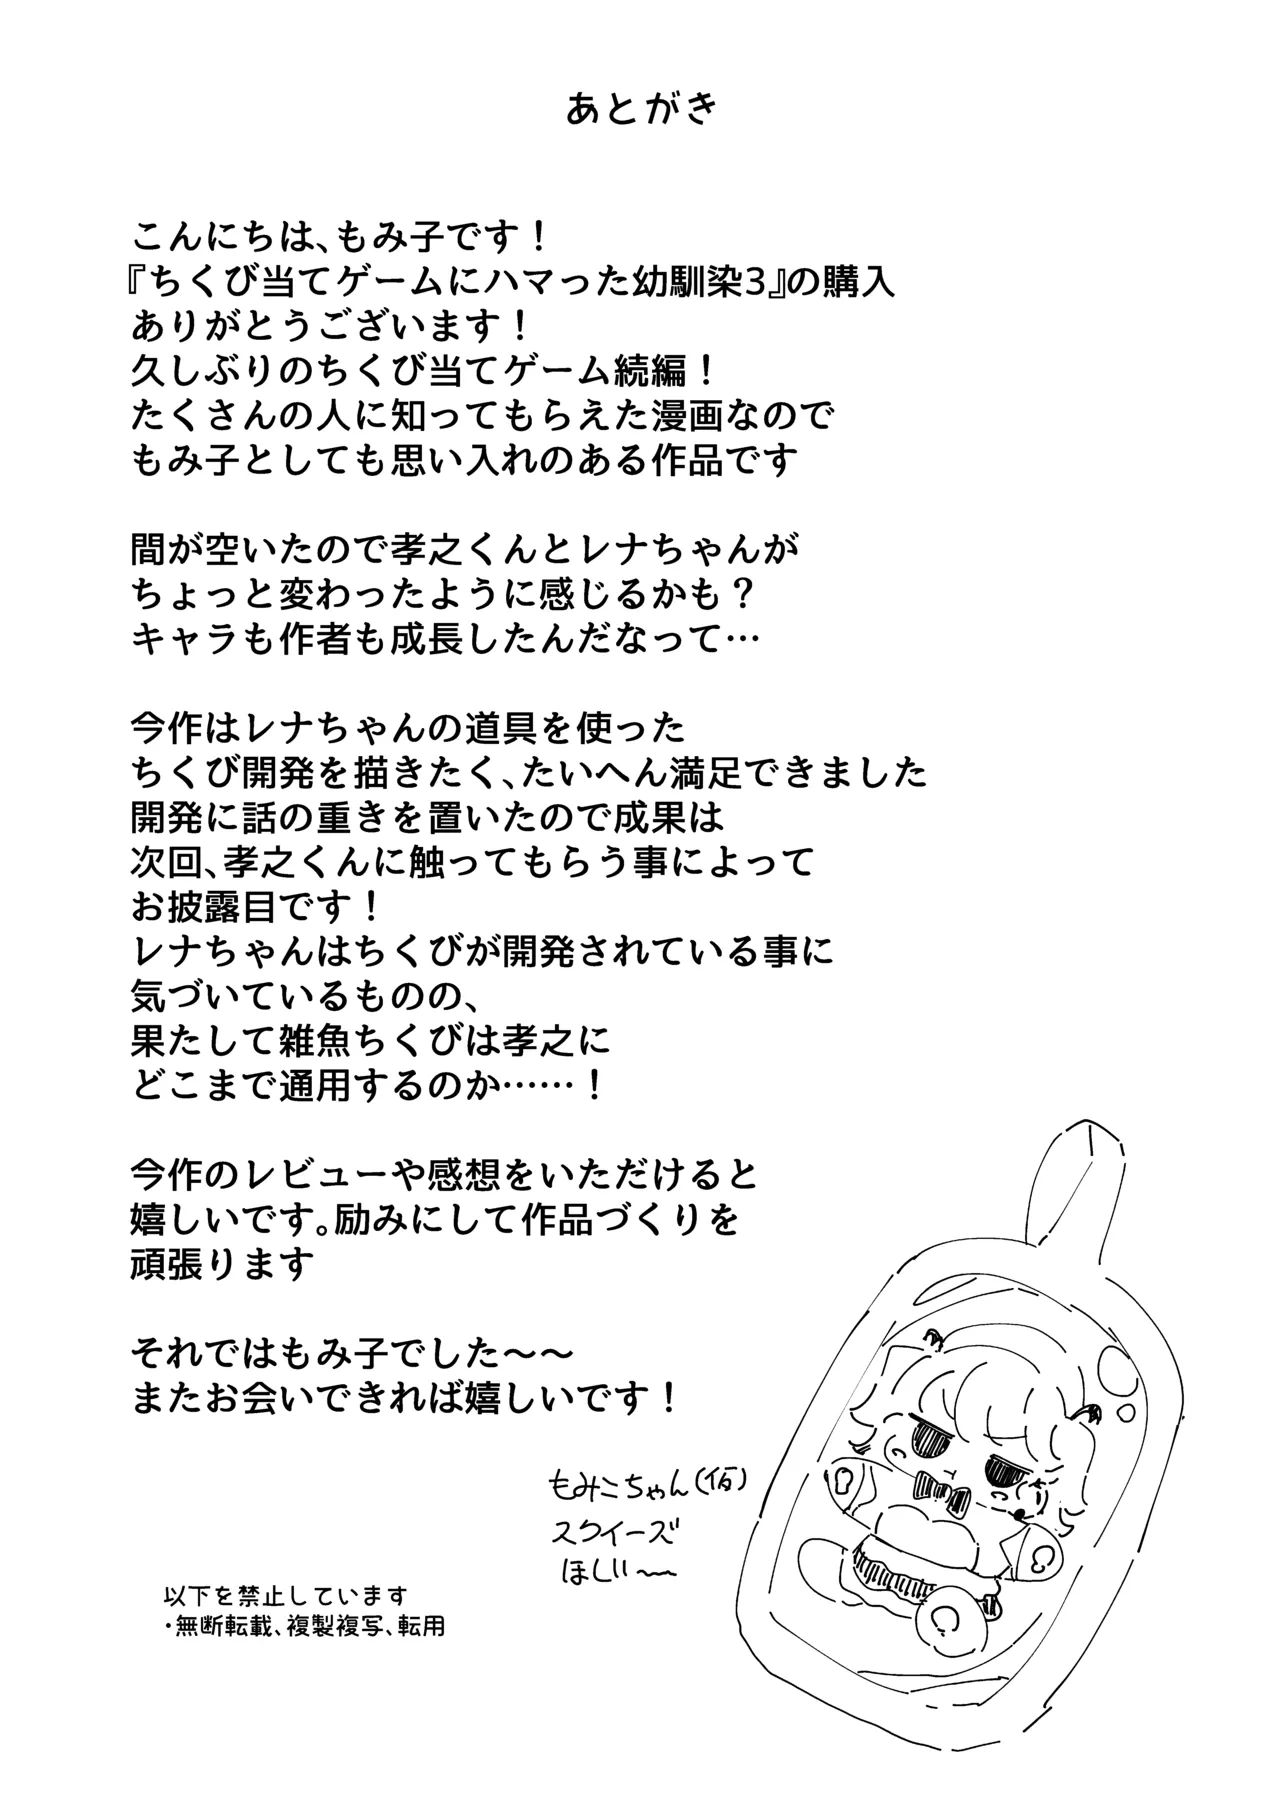 あとがき
こんにちは、もみ子です！
『ちくび当てゲームにハマった幼馴染3』の購入
ありがとうございます！
久しぶりのちくび当てゲーム続編！
たくさんの人に知ってもらえた漫画なので
もみ子としても思い入れのある作品です
間が空いたので孝之くんとレナちゃんが
ちょっと変わったように感じるかも？
キャラも作者も成長したんだなって…
今作はレナちゃんの道具を使った
ちくび開発を描きたく、たいへん満足できました
開発に話の重きを置いたので成果は
次回、孝之くんに触ってもらう事によって
お披露目です！
レナちゃんはちくびが開発されている事に
気づいているものの、
果たして雑魚ちくびは孝之に
どこまで通用するのか……！
今作のレビューや感想をいただけると
嬉しいです。励みにして作品づくりを
頑張ります
それではもみ子でした～～
またお会いできれば嬉しいです！
もみこちゃん(仮)
スクイーズ
ほしい～
以下を禁止しています
・無断転載、複製複写、転用